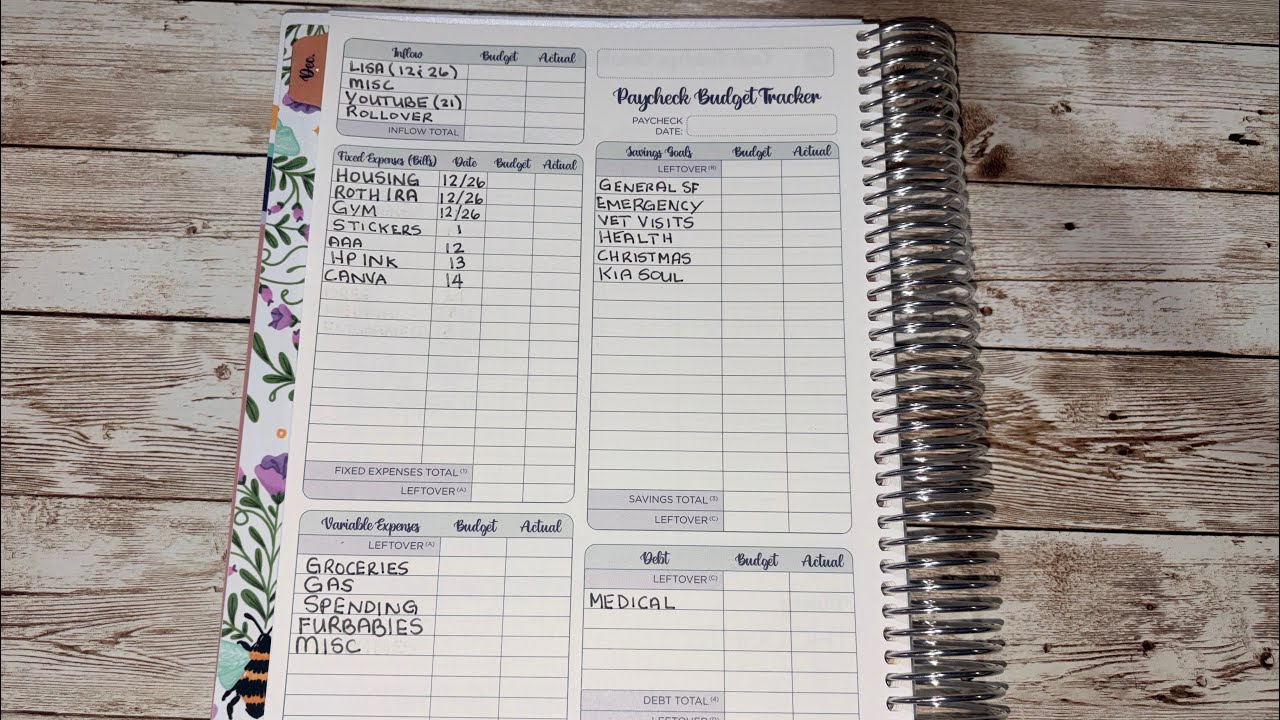 Dec.
Inflow Budget Actual
LISA (12 & 26)
MISC
YOUTUBE (21)
ROLLOVER
INFLOW TOTAL
Paycheck Budget Tracker
PAYCHECK
DATE:
Fixed Expenses (Bills) Date Budget Actual
HOUSING 12/26
ROTH IRA 12/26
GYM 12/26
STICKERS 1
AAA 12
HP INK 13
CANVA 14
FIXED EXPENSES TOTAL (1)
LEFTOVER (A)
Savings Goals Budget Actual
LEFTOVER (B)
GENERAL SF
EMERGENCY
VET VISITS
HEALTH
CHRISTMAS
KIA SOUL
SAVINGS TOTAL (3)
LEFTOVER (C)
Variable Expenses Budget Actual
LEFTOVER (A)
GROCERIES
GAS
SPENDING
FURBABIES
MISC
Debt Budget Actual
LEFTOVER (C)
MEDICAL
DEBT TOTAL (4)